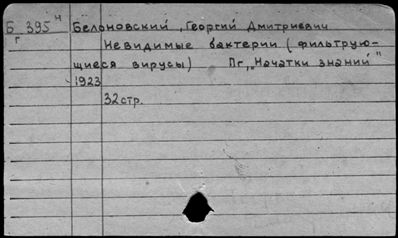 Б 395 ч Белоновский, Георгий Дмитриевич
г
Невидимые бактерии (фильтрую-
щиеся вирусы) Пг, „Начатки знаний"
1923
32 стр.